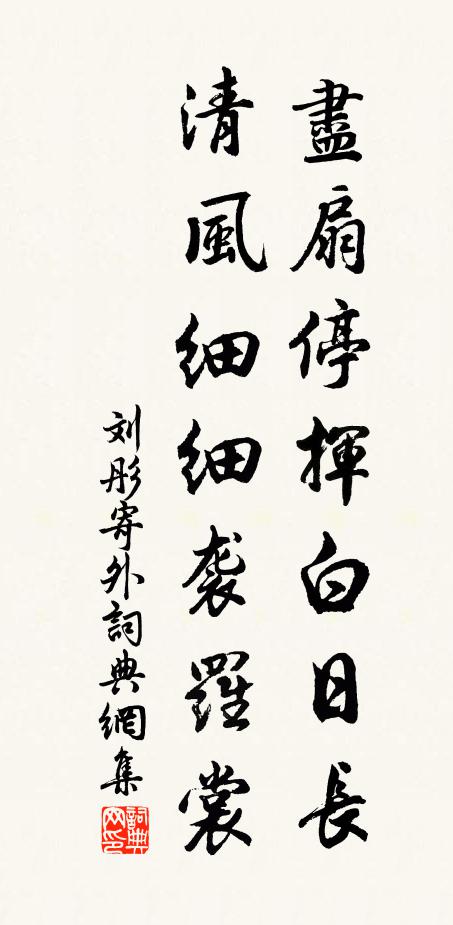 盡扇停揮白日長
清風細細袭羅裳
刘彤寄外詞典網集
詞典网印